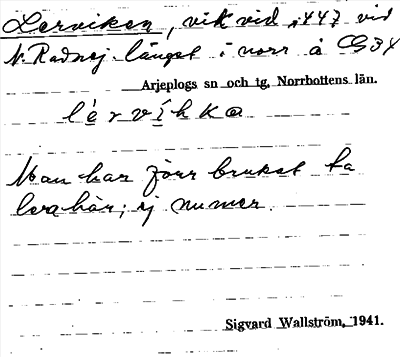 Lerviken, vik vid 447 vid
N. Radnej längst i norr å G34
Arjeplogs sn och tg, Norrbottens län.
lèrvíkka
Man har förr brukat ta
lera här; ej numer.
Sigvard Wallström, 1941.